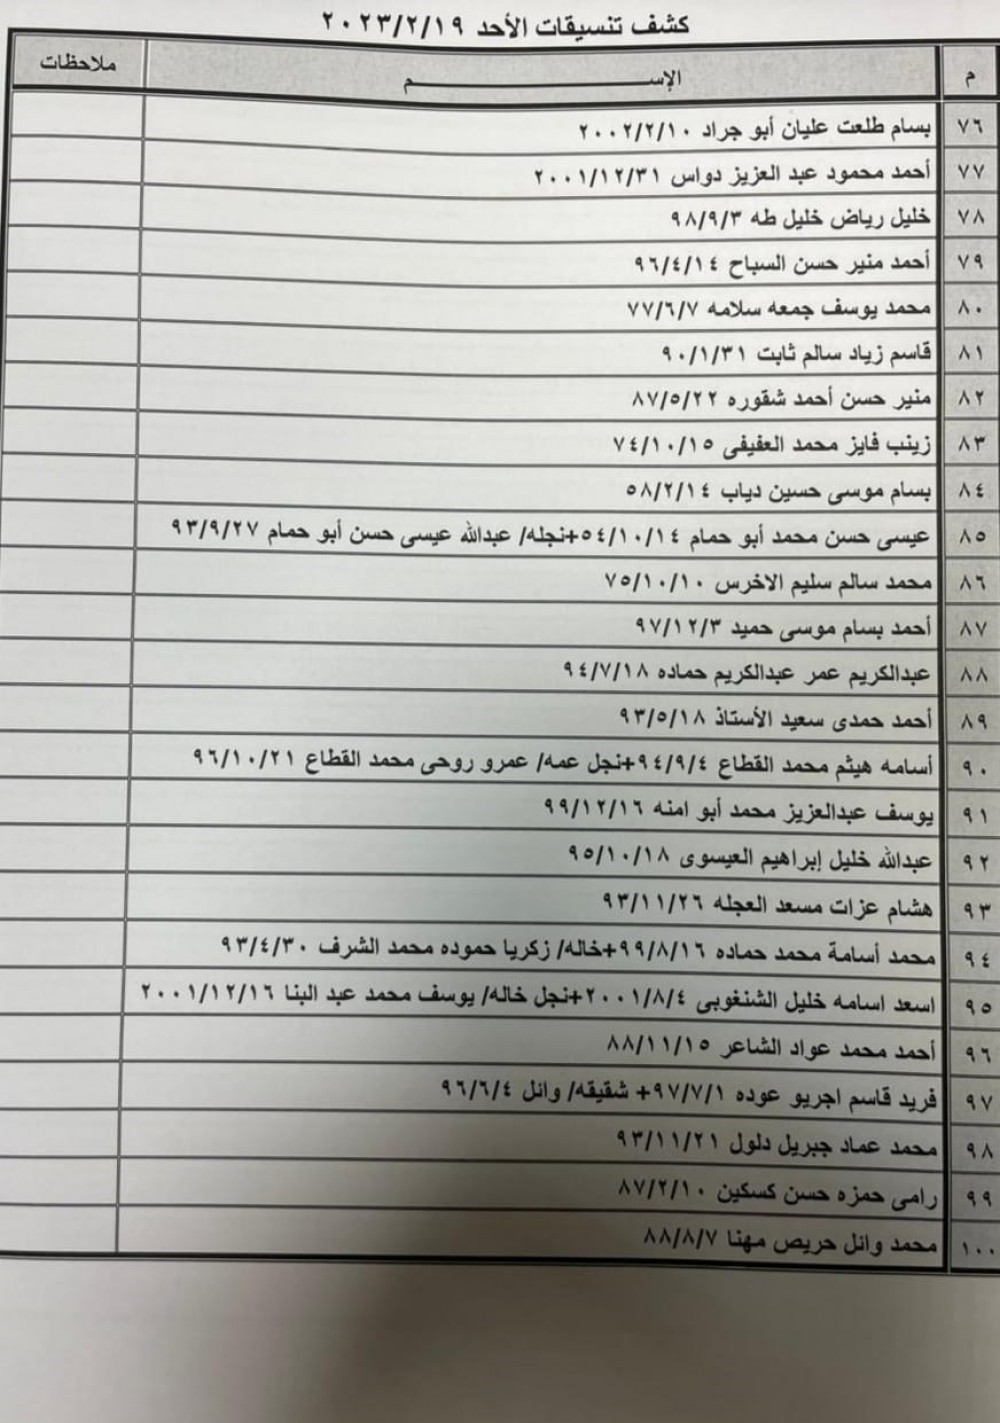 كشف تنسيقات الأحد ٢٠٢٣/٢/١٩
م الإســـــــــم ملاحظات
٧٦ بسام طلعت عليان أبو جراد ٢٠٠٢/٢/١٠
٧٧ أحمد محمود عبد العزيز دواس ٢٠٠١/١٢/٣١
٧٨ خليل رياض خليل طه ٩٨/٩/٣
٧٩ أحمد منير حسن السباح ٩٦/٤/١٤
٨٠ محمد يوسف جمعه سلامه ٧٧/٦/٧
٨١ قاسم زياد سالم ثابت ٩٠/١/٣١
٨٢ منير حسن أحمد شقوره ٨٧/٥/٢٢
٨٣ زينب فايز محمد العفيفى ٧٤/١٠/١٥
٨٤ بسام موسى حسين دياب ٥٨/٢/١٤
٨٥ عيسى حسن محمد أبو حمام ٥٤/١٠/١٤+نجله/ عبدالله عيسى حسن أبو حمام ٩٣/٩/٢٧
٨٦ محمد سالم سليم الاخرس ٧٥/١٠/١٠
٨٧ أحمد بسام موسى حميد ٩٧/١٢/٣
٨٨ عبدالكريم عمر عبدالكريم حماده ٩٤/٧/١٨
٨٩ أحمد حمدى سعيد الأستاذ ٩٣/٥/١٨
٩٠ أسامه هيثم محمد القطاع ٩٤/٩/٤+نجل عمه/ عمرو روحى محمد القطاع ٩٦/١٠/٢١
٩١ يوسف عبدالعزيز محمد أبو امنه ٩٩/١٢/١٦
٩٢ عبدالله خليل إبراهيم العيسوى ٩٥/١٠/١٨
٩٣ هشام عزات مسعد العجله ٩٣/١١/٢٦
٩٤ محمد أسامة محمد حماده ٩٩/٨/١٦+خاله/ زكريا حموده محمد الشرف ٩٣/٤/٣٠
٩٥ اسعد اسامه خليل الشنغوبى ٢٠٠١/٨/٤+نجل خاله/ يوسف محمد عبد البنا ٢٠٠١/١٢/١٦
٩٦ أحمد محمد عواد الشاعر ٨٨/١١/١٥
٩٧ فريد قاسم اجريو عوده ٩٧/٧/١+ شقيقه/ وائل ٩٦/٦/٤
٩٨ محمد عماد جبريل دلول ٩٣/١١/٢١
٩٩ رامى حمزه حسن كسكين ٨٧/٢/١٠
١٠٠ محمد وائل حريص مهنا ٨٨/٨/٧